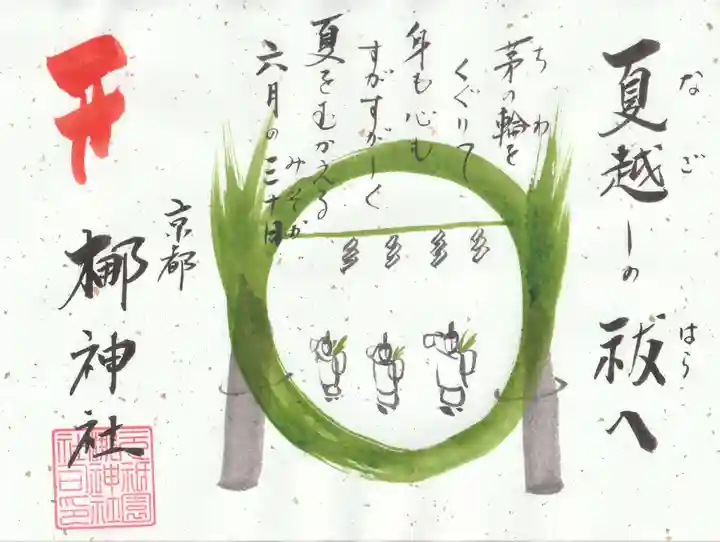 なご はら
夏越しの祓へ
ち わ
茅の輪を
くぐりて
身も心も
すがすがしく
夏をむかえる
みそか
六月の三十日
京都
梛神社
元祇園
梛神社